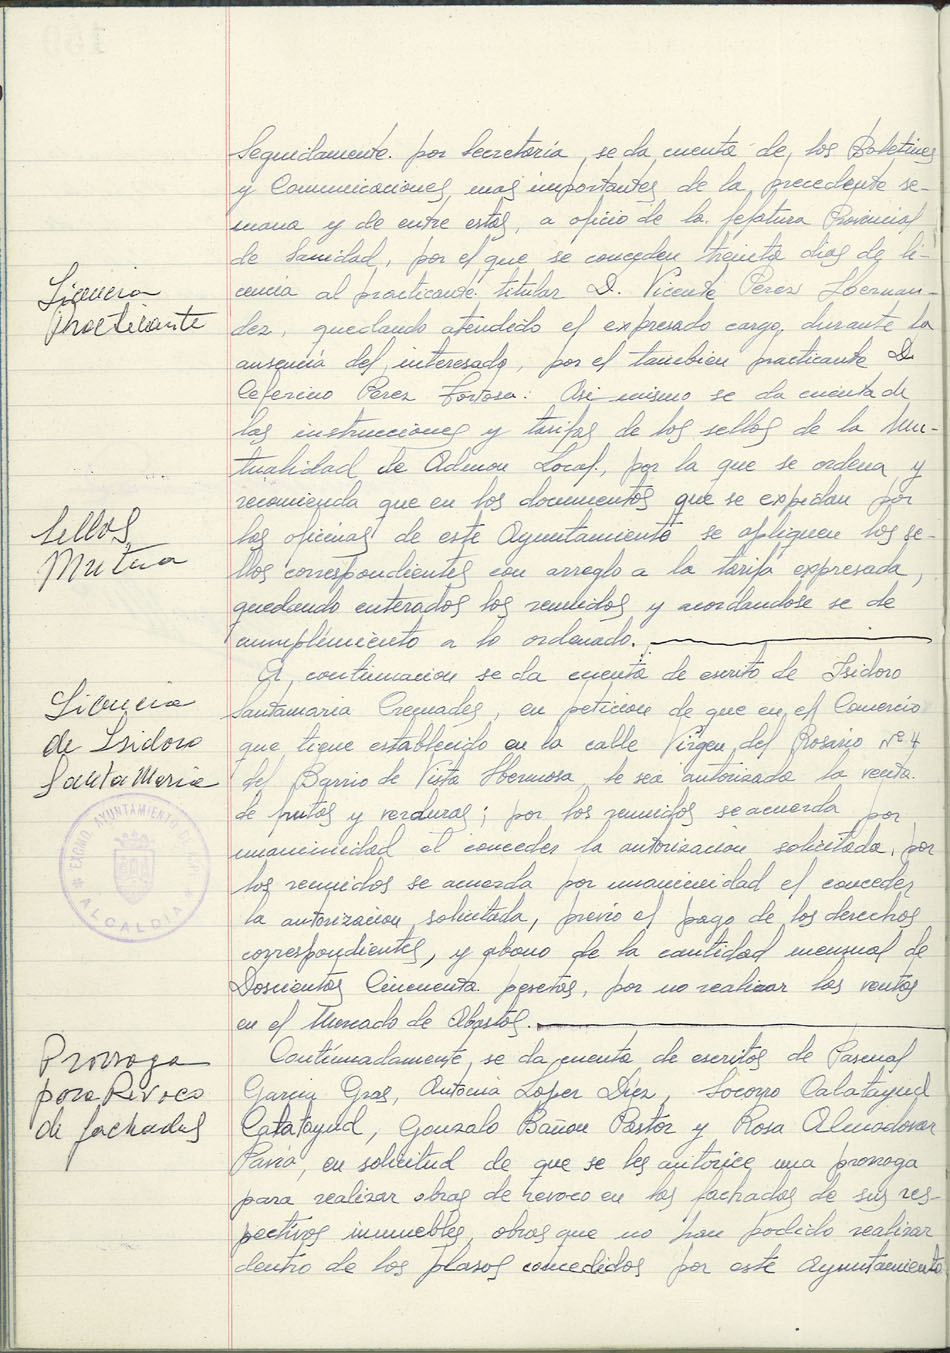 Seguidamente. por Secretaría, se da cuenta de, los Boletines
y Comunicaciones, mas importantes de la, precedente se-
mana y de entre estos, a oficio de la Jefatura Provincial
de Sanidad, por el que se conceden treinta dias de li-
Licencia
Practicante
cencia al practicante titular D. Vicente Perez Hernan-
dez, quedando atendido el expresado cargo, durante la
ausencia del interesado, por el tambien practicante D.
Ceferino Perez Tortosa: Asi mismo se da cuenta de
las instrucciones y tarifas de los sellos de la Mu-
tualidad de Admon Local, por la que se ordena y
recomienda que en los documentos que se expidan por
Sellos
Mutua
las oficinas de este Ayuntamiento se apliquen los se-
llos correspondientes con arreglo a la tarifa expresada,
quedando enterados los reunidos y acordandose se de
cumplimiento a lo ordenado.
A, continuacion se da cuenta de escrito de Isidoro
Licencia
de Isidoro
Santa Maria
Santamaria Cremades, en peticion de que en el Comercio
que tiene establecido en la calle Virgen del Rosario Nº 4
del Barrio de Vista Hermosa le sea autorizada la venta
de frutas y verduras; por los reunidos se acuerda por
unanimidad el conceder la autorizacion solicitada, por
los reunidos se acuerda por unanimidad el conceder
la autorizacion solicitada, previo el pago de los derechos
correspondientes, y abono de la cantidad mensual de
Doscientas Cincuenta pesetas, por no realizar las ventas
en el Mercado de Abastos.
EXCMO. AYUNTAMIENTO DE ASPE
ALCALDIA
Prorroga
para Revoco
de fachadas
Continuadamente, se da cuenta de escritos de Pascual
Garcia Gras, Antonia Lopez Diez, Socorro Calatayud
Calatayud, Gonzalo Bañon Pastor y Rosa Almodovar
Pavia, en solicitud de que se les autorice una prorroga
para realizar obras de revoco en las fachadas de sus res-
pectivos inmuebles, obras que no han podido realizar
dentro de los plasos concedidos por este Ayuntamiento